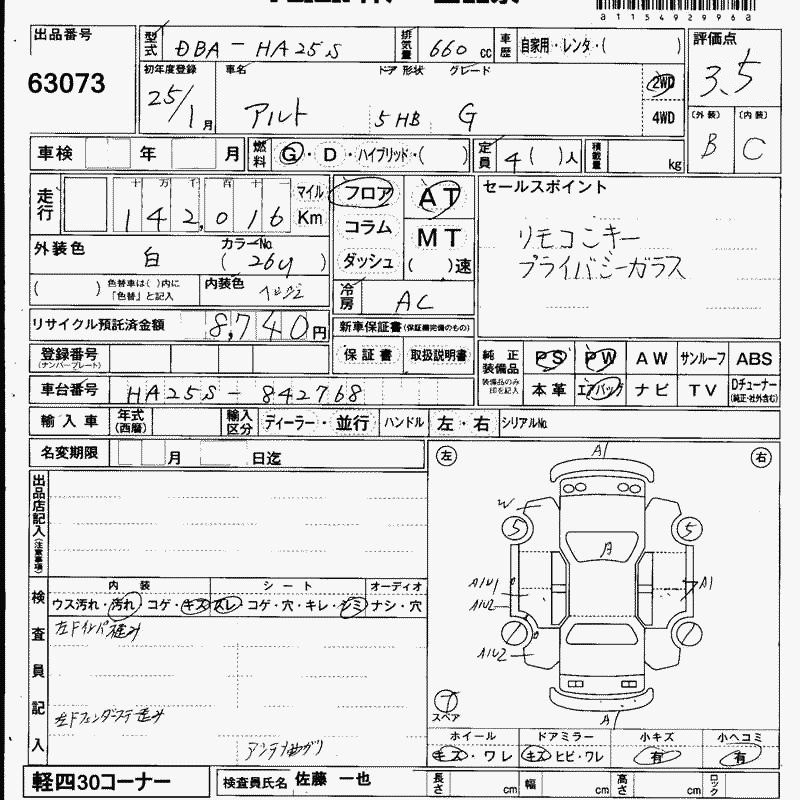 a1154929960
出品番号
63073
型式 DBA-HA25S
排気量 660 cc
車歴 自家用・レンタ・( )
評価点
3.5
初年度登録
25/1月
車名
アルト
ドア 形状
5HB
グレード
G
2WD
4WD
(外装)
B
(内装)
C
車検 年 月
燃料 G・D・ハイブリッド・( )
定員 4( )人
積載量 kg
走行
十 万 千 百 十
142,016
マイル
Km
フロア
コラム
ダッシュ
AT
MT
( )速
セールスポイント
リモコンキー
プライバシーガラス
外装色
白
カラーNo.
(26U)
( )
色替車は( )内に
「色替」と記入
内装色
冷房
AC
リサイクル預託済金額 8,740円
新車保証書(保証欄完備のもの)
保証書 取扱説明書
登録番号
(ナンバープレート)
純正装備品
装備品のみ印を記入
PS PW AW サンルーフ ABS
本革 エアバッグ ナビ TV Dチューナー
(純正・社外含む)
車台番号 HA25S-842768
輸入車 年式(西暦)
輸入区分 ディーラー・並行
ハンドル 左・右
シリアルNo.
名変期限 月 日迄
出品店記入(注意事項)
左
右
A1
W
5
5
A
A1U1
A1U2
A1
A1U2
T
スペア
A1
検査員記入
内装
シート
オーディオ
ウス汚れ・汚れ・コゲ・キズ
スレ・コゲ・穴・キレ・シミ
ナシ・穴
左Fインパ歪み
左Fフェンダーステー歪み
アンテナ曲がり
ホイール
キズ・ワレ
ドアミラー
キズ・ヒビ・ワレ
小キズ
有
小ヘコミ
有
軽四30コーナー
検査員氏名 佐藤 一也
長さ cm
幅 cm
高さ cm
ロック